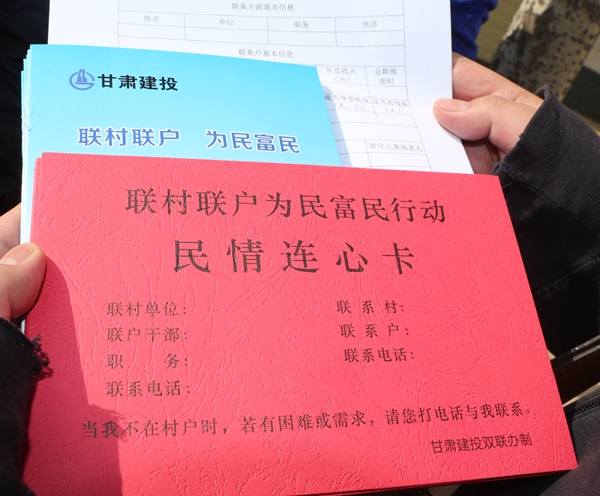 联系干部基本信息
姓名 单位 职务 电话
联系户基本信息
年总收入
(元)
总耕地
面积
是否有残疾
(人)
留守儿童或老人
甘肃建投
联村联户 为民富民
联村联户为民富民行动
民情连心卡
联村单位: 联系村:
联户干部: 联系户:
职务: 联系电话:
联系电话:
当我不在村户时，若有困难或需求，请您打电话与我联系。
甘肃建投双联办制